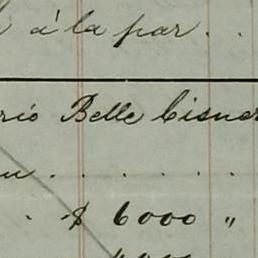 á la par . .
rio Belle Cisner
. . . . . .
. . $ 6000 "